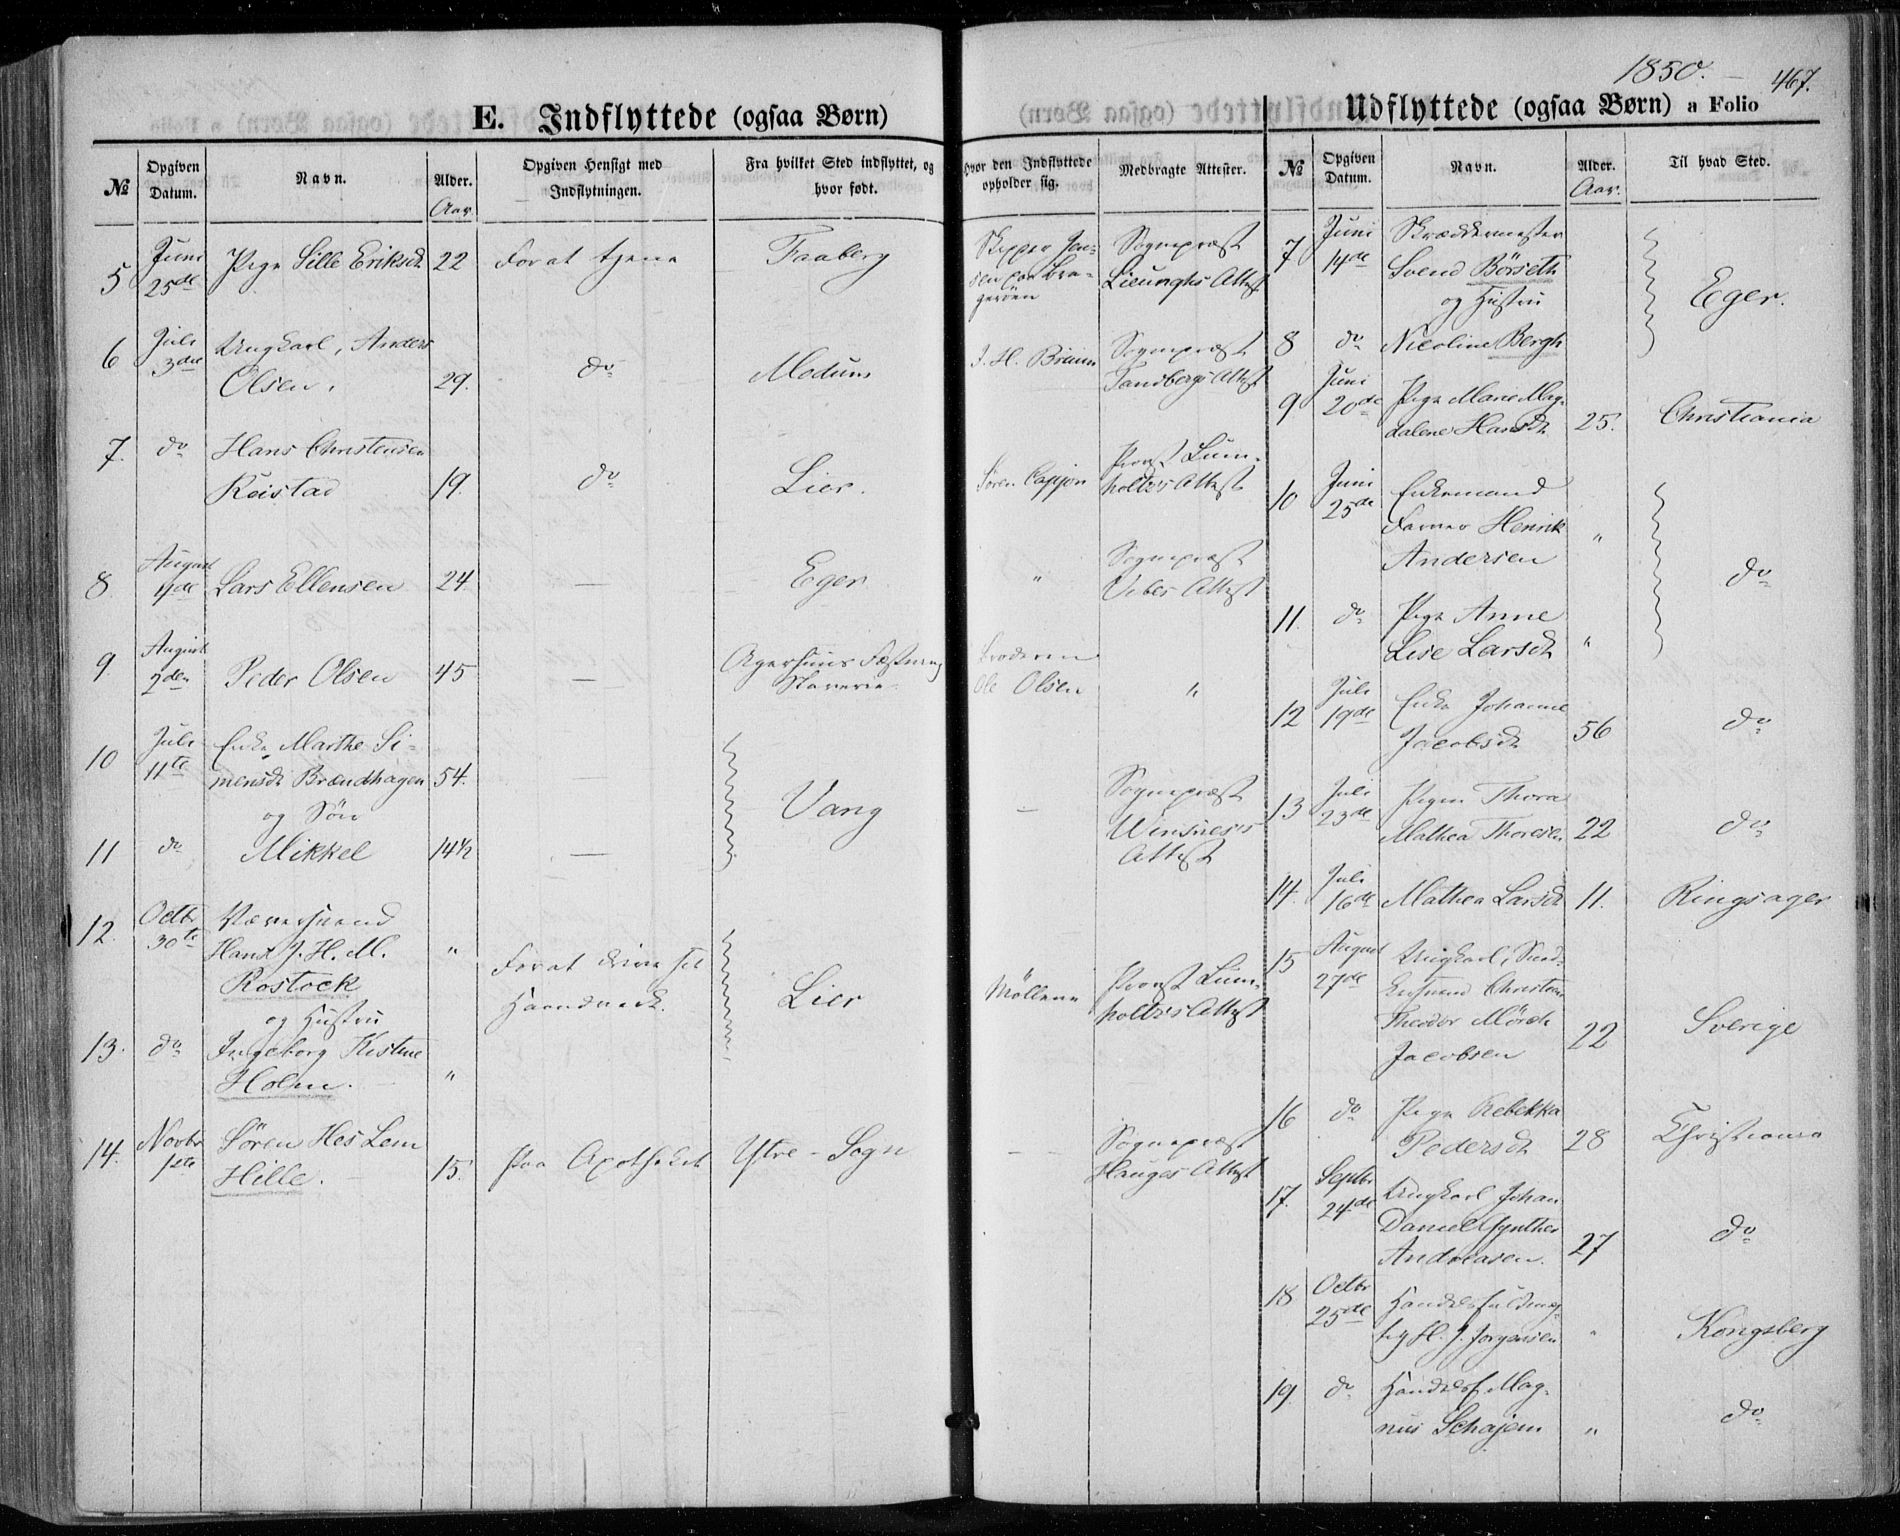 1850.
467.
E. Indflyttede (ogsaa Børn)
Udflyttede (ogsaa Børn) a Folio
№ Opgiven Datum. Navn. Alder. Opgiven Hensigt med Indflytningen. Fra hvilket Sted indflyttet, og hvor født. Hvor den Indflyttede opholder sig. Medbragte Attester.
Aar
5 Juni 25de Pige Sille Eriksdt 22 For at tjene Faaberg Skipper Jensen paa Bragerøen Sognepræst Lieunghs Attest
6 Juli 3die Ungkarl, Anders Olsen. 29. do Modum J. H. Bruun Sognepræst Tandbergs Attest
7. do Hans Christensen Reistad 19. do Lier. Søren Cappon Provst Lumholtz's Attest
8. August Lars Ellensen 24. — Eger " Sognepræst Vibes Attest
9. August 2den Peder Olsen 45 — Agershuus Fæstning Slaverie Broderen Ole Olsen "
10 Juli 11te Enke Marthe Simensdt Brændhagen 54. — Vang — Sognepræst Winsnes's Attest
og Søn
11 do Mikkel 14½ —
12. Octbr 30te Hans J. H. M. Rostock " For at drive sit Haandværk. Lier Møllerne Provst Lumholtz's Attest
og Hustru
13. do Ingeborg Kistine Holm. "
14. Novbr 1ste Søren Hes Lem Hille. 15. paa Apotheket Ytre-Sogn — Sognepræst Hauges Attest
№ Opgiven Datum. Navn. Alder. Til hvad Sted.
Aar.
7 Juni 14de Skræddermester Svend Børseth Eger.
og Hustru
8 do Nicoline Bergh
9 Juni 20de Pige Marie Magdalene Hansdt 25. Christiania
10 Juni 25de Enkemand Farver Henrik Andersen " do
11. do Pige Anne Lise Larsdt "
12 Juli 19de Enke Johanne Jacobsdt 56 do
13 Juli 23de Pigen Thora Mathea Thoresen 22 do
14. Juli 16de Mathea Larsdt 11. Ringsager
15 August 27de Ungkarl, Christian Theodor Mørch Jacobsen 22 Sverige
16 do Pige Rebekka Pedersdt 28 Christiania
17. Septbr 24de Ungkarl Johan Daniel Gynther Andreasen. 27 do
18 Octbr 25de Handelsfuldmægtig H. J. Jørgensen " Kongsberg
19. do Handelsf. Magnus Schøjem " do